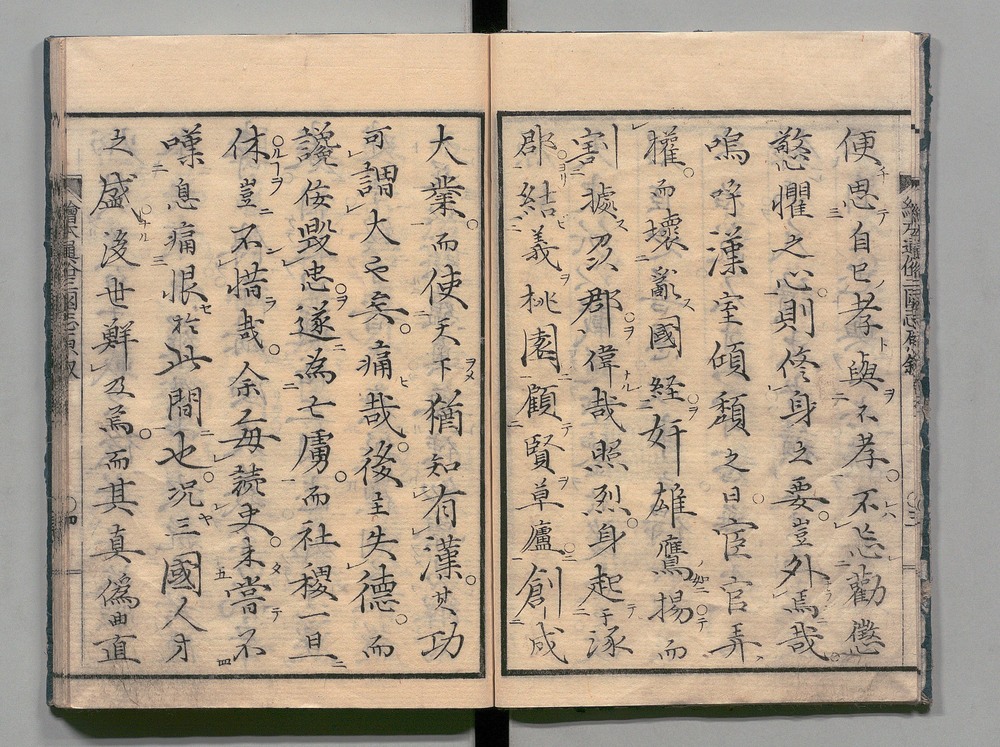 便思自己孝與不孝不忘勸懲
愁懼之心則修身之要豈外焉哉
嗚呼漢室傾頽之日宦官弄
權而壞亂國經奸雄鷹揚而
割據郡偉哉照烈身起于涿
郡結義桃園顧賢草廬創成
大業而使天下猶知有漢其功
可謂大也矣痛哉後主失德而
讒佞毀忠遂為亡虜而社稷一旦
休豈不惜哉余每讀史未嘗不
嘆息痛恨於此間也況三國人才
之盛後世鮮及焉而其真偽曲直